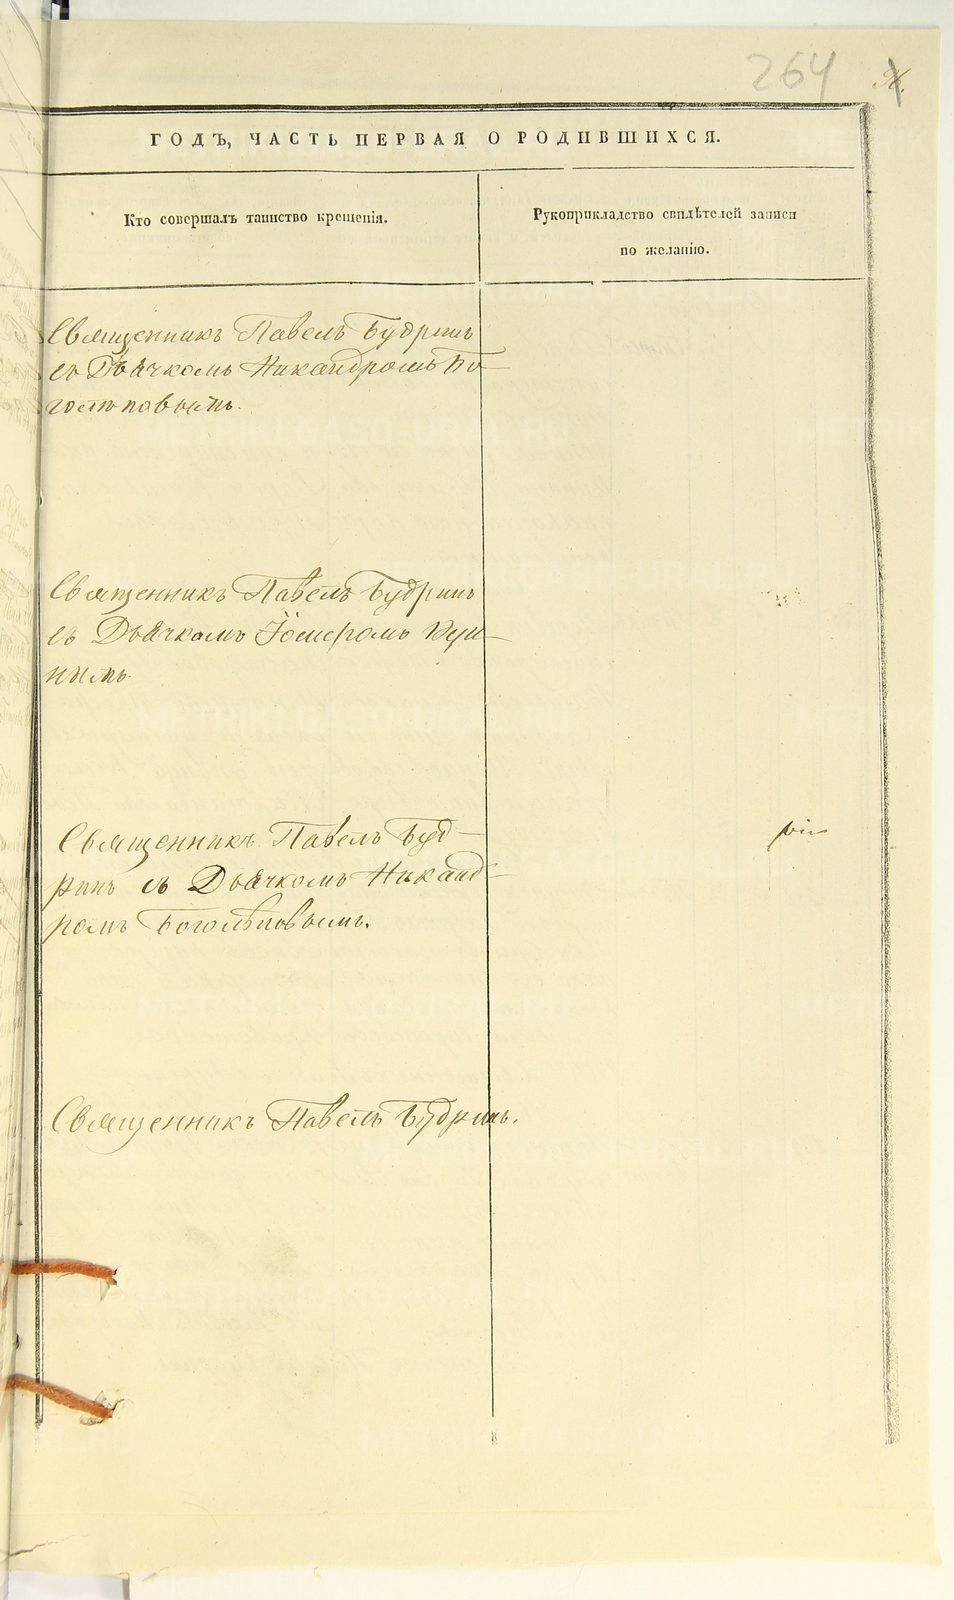 264
ГОДЪ, ЧАСТЬ ПЕРВАЯ О РОДИВШИХСЯ.
Кто совершалъ таинство крещенія.
Рукоприкладство свидѣтелей записи
по желанію.
Священникъ Павелъ Будринъ
съ Дьячкомъ Никандромъ Бо-
голѣповымъ.
Священникъ Павелъ Будринъ
съ Дьячкомъ
нымъ.
Священникъ Павелъ Буд-
ринъ съ Дьячкомъ Никанд-
ромъ Боголѣповымъ.
Священникъ Павелъ Будринъ.
METRIKI.GASO-URAL.RU